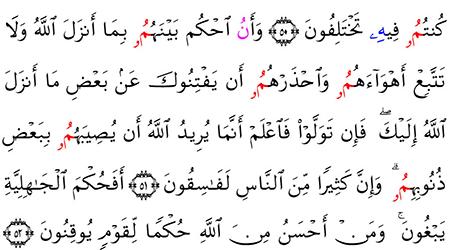 كُنتُمُۥ فِيهِۦ تَخْتَلِفُونَ ۝٥٠ وَأَنُ ٱحْكُم بَيْنَهُمُۥ بِمَا أَنزَلَ ٱللَّهُ وَلَا
تَتَّبِعْ أَهْوَآءَهُمُۥ وَٱحْذَرْهُمُۥ أَن يَفْتِنُوكَ عَنۢ بَعْضِ مَا أَنزَلَ
ٱللَّهُ إِلَيْكَ ۖ فَإِن تَوَلَّوْا۟ فَٱعْلَمْ أَنَّمَا يُرِيدُ ٱللَّهُ أَن يُصِيبَهُمُۥ بِبَعْضِ
ذُنُوبِهِمُۥ ۗ وَإِنَّ كَثِيرًا مِّنَ ٱلنَّاسِ لَفَـٰسِقُونَ ۝٥١ أَفَحُكْمَ ٱلْجَـٰهِلِيَّةِ
يَبْغُونَ ۚ وَمَنْ أَحْسَنُ مِنَ ٱللَّهِ حُكْمًا لِّقَوْمٍ يُوقِنُونَ ۝٥٢